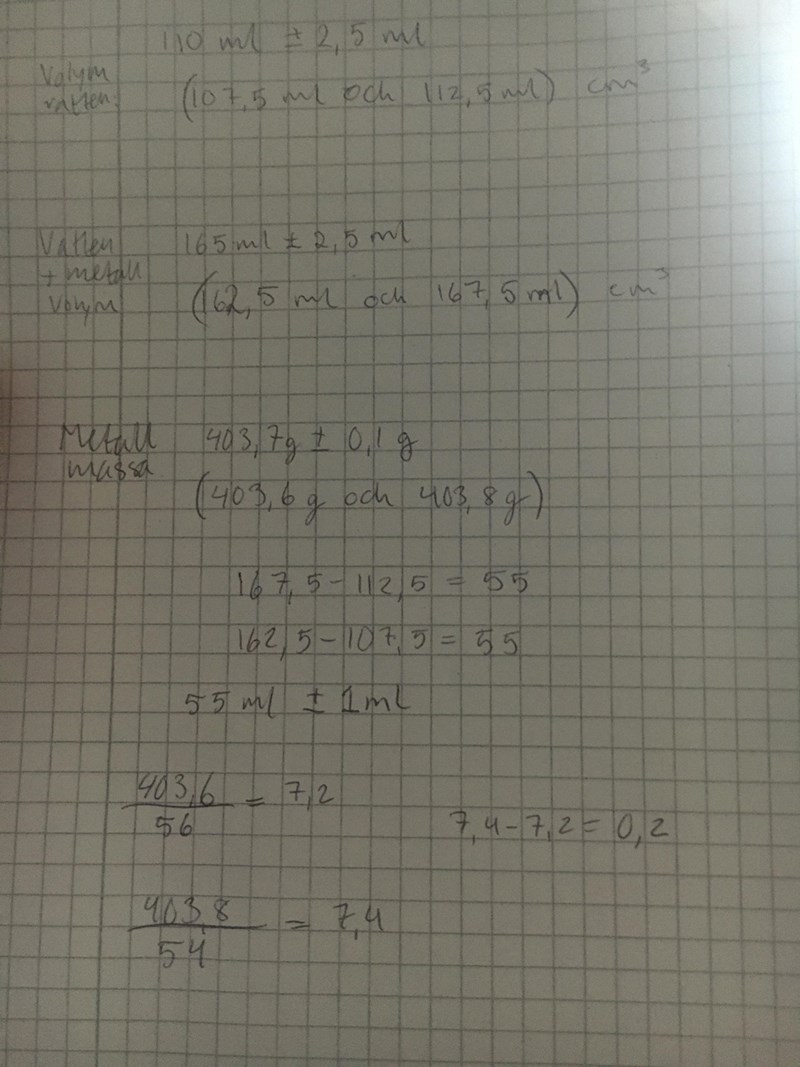 110 ml ± 2,5 ml
Volym
vatten
(107,5 ml och 112,5 ml) cm³
Vatten
+ metall
Volym
165 ml ± 2,5 ml
(162,5 ml och 167,5 ml) cm³
Metall
massa
403,7g ± 0,1 g
(403,6 g och 403,8 g)
167,5 - 112,5 = 55
162,5 - 107,5 = 55
55 ml ± 1 ml
403,6 / 56 = 7,2
7,4 - 7,2 = 0,2
403,8 / 54 = 7,4